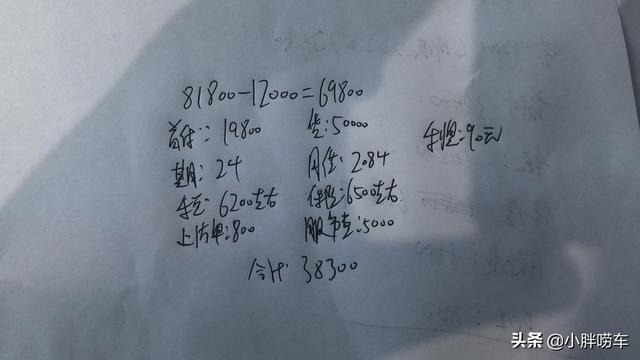 81800-12000=69800
首付:19800 贷:50000 手续:90元
期:24 月供:2084
税:6200左右 保险:6500左右
上牌:800 服务费:5000
合计:38300
头条 @小胖唠车